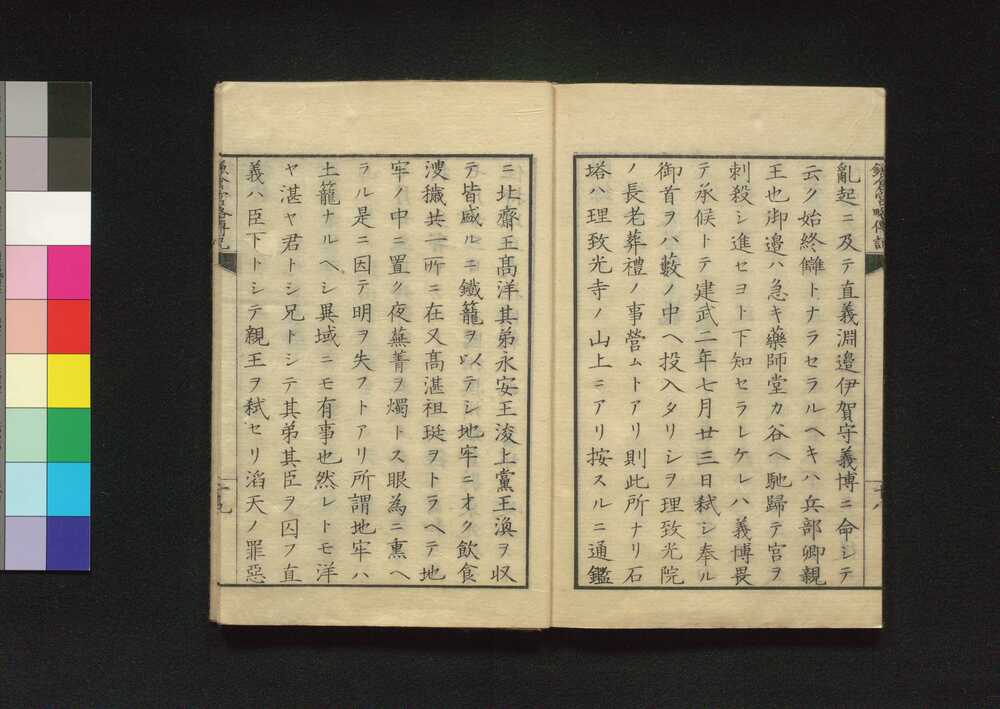 鎌倉宮略傳記
亂起ニ及テ直義淵邊伊賀守義博ニ命シテ
云ク始終讎トナラセラルヘキハ兵部卿親
王也御邊ハ急キ藥師堂カ谷ヘ馳歸テ宮ヲ
刺殺シ進セヨト下知セラレケレハ義博畏
テ承候トテ建武二年七月廿三日弑シ奉ル
御首ヲハ藪ノ中ヘ投入タリシヲ理致光院
ノ長老葬禮ノ事營ムトアリ則此所ナリ石
塔ハ理致光寺ノ山上ニアリ按スルニ通鑑
ニ北齋王髙洋其弟永安王浚上黨王渙ヲ収
テ皆盛ルニ鐵籠ヲ以テシ地牢ニオク飲食
溲穢共一所ニ在又髙湛祖珽ヲトラヘテ地
牢ノ中ニ置ク夜蕪菁ヲ燭トス眼為ニ熏ヘ
ラル是ニ因テ明ヲ失フトアリ所謂地牢ハ
土籠ナルヘシ異域ニモ有事也然レトモ洋
ヤ湛ヤ君トシ兄トシテ其弟其臣ヲ囚フ直
義ハ臣下トシテ親王ヲ弑セリ滔天ノ罪惡
鎌倉宮略傳記